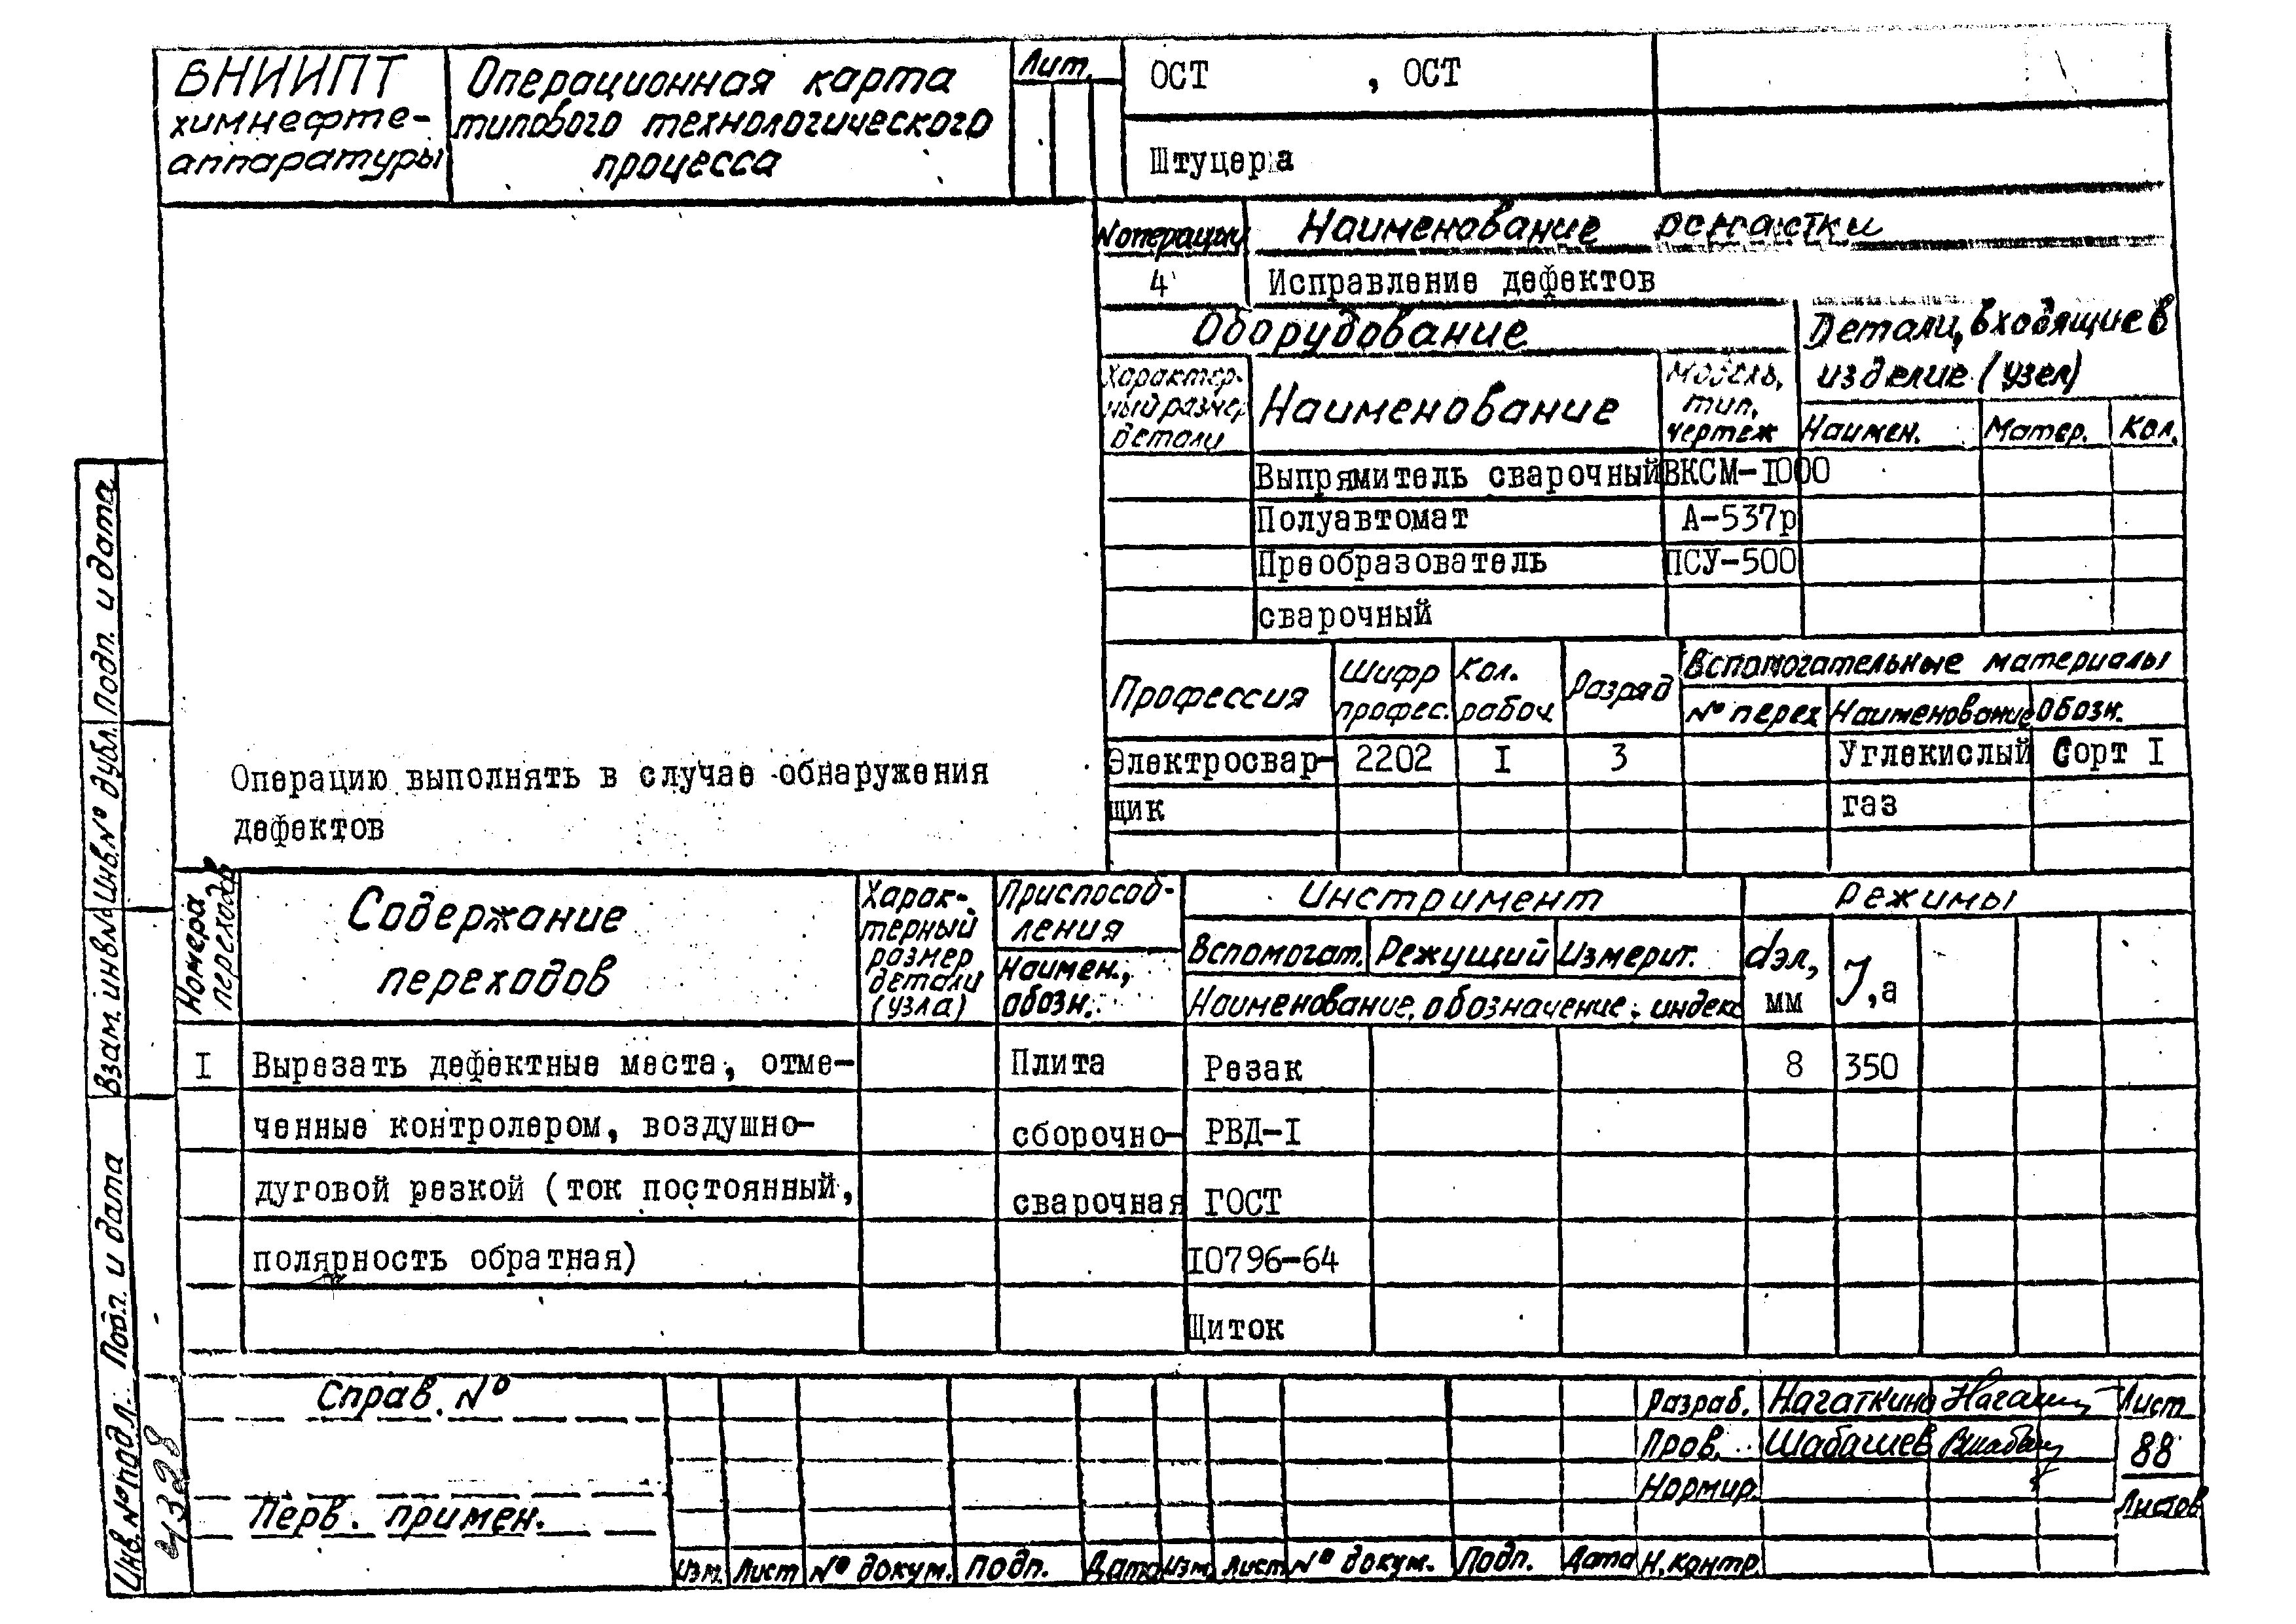 ВНИИПТ
химнефте-
аппаратуры
Операционная карта
типового технологического
процесса
Лит.
ОСТ , ОСТ
Штуцера
№ операции
Наименование оснастки
4
Исправление дефектов
Оборудование
Детали, входящие в
изделие (узел)
Характер-
ный размер
детали
Наименование
Модель,
тип,
чертеж
Наимен.
Матер.
Кол.
Выпрямитель сварочный ВКСМ-I000
Полуавтомат А-537р
Преобразователь ПСУ-500
сварочный
Профессия
Шифр
профес.
Кол.
рабоч.
Разряд
Вспомогательные материалы
№ перех
Наименование
Обозн.
Электросвар- 2202 I 3 Углекислый Сорт I
щик газ
Операцию выполнять в случае обнаружения
дефектов
Номера
переходов
Содержание
переходов
Харак-
терный
размер
детали
(узла)
Приспособ-
ления
Наимен.,
обозн.
Инструмент
Вспомогат. Режущий Измерит.
Наименование, обозначение, индекс
Режимы
dэл,
мм
J,а
I Вырезать дефектные места, отме- Плита Резак 8 350
ченные контролером, воздушно- сборочно- РВД-I
дуговой резкой (ток постоянный, сварочная ГОСТ
полярность обратная) I0796-64
Щиток
Справ. №
Перв. примен.
Изм. Лист № докум. Подп. Дата Изм. Лист № докум. Подп. Дата
Разраб. Нагаткина
Пров. Шабашев
Нормир.
Н.контр.
Лист
88
Листов
Подп. и дата
Инв. № дубл.
Взам. инв №
Подп. и дата
Инв. № подл.